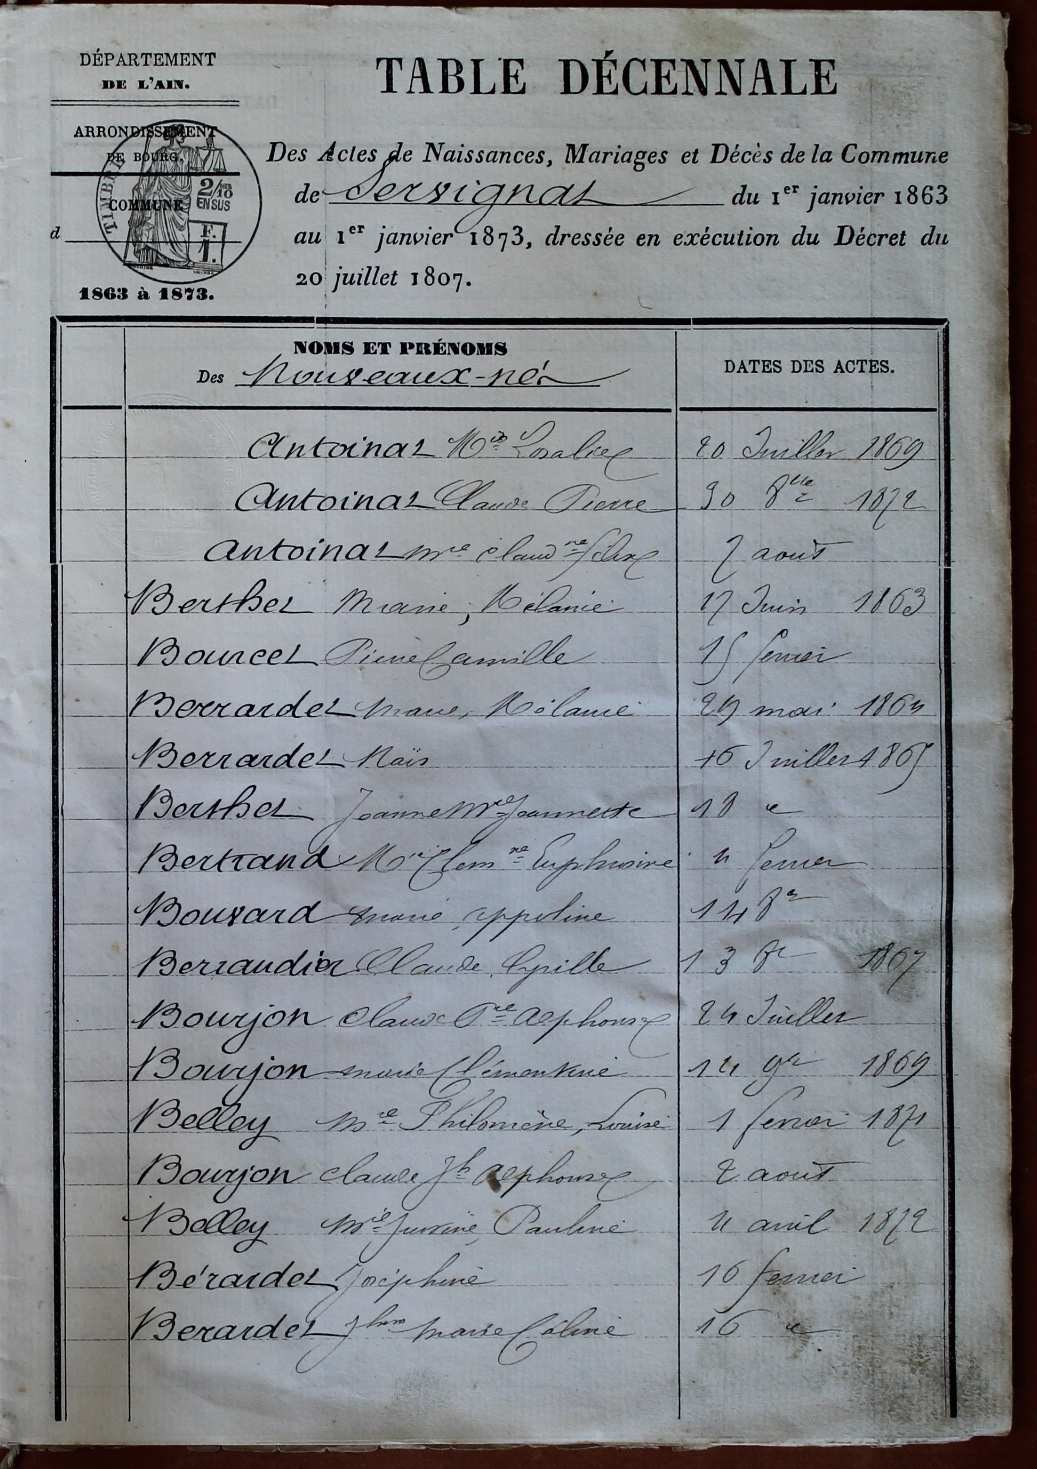 DÉPARTEMENT
DE L'AIN.
ARRONDISSEMENT
DE BOURG.
COMMUNE
d
TIMBRE
2/10
EN SUS
F.
1.
1863 à 1873.
TABLE DÉCENNALE
Des Actes de Naissances, Mariages et Décès de la Commune
de Servignat du 1er janvier 1863
au 1er janvier 1873, dressée en exécution du Décret du
20 juillet 1807.
NOMS ET PRÉNOMS
Des Nouveaux-nés
DATES DES ACTES.
Antoinat Mie Rosalie 20 Juillet 1869
Antoinat Claude Pierre 30 8bre 1872
Antoinat Mie Claudne 7 août
Berthet Marie, Mélanie 17 Juin 1863
Bourcet Pierre Camille 15 fevrier
Berrardet Marie, Mélanie 29 mai 1864
Berrardet Naïs 16 Juillet 1865
Berthet Jeanne Mie Jeannette 18 "
Bertrand Mie Clemne Euphrosine 4 fevrier
Bouvard Marie Appoline 14 8re
Berraudier Claude Cyrille 13 8re 1867
Bourjon Claude Pre Alphonse 24 Juillet
Bourjon Marie Clémentine 14 9re 1869
Belley Mie Philomène, Louise 1 fevrier 1871
Bourjon Claude Jh Alphonse 2 août
Belley Mie Pauline 4 avril 1872
Bérardet Joséphine 16 fevrier
Berardet Marie Céline 16 "